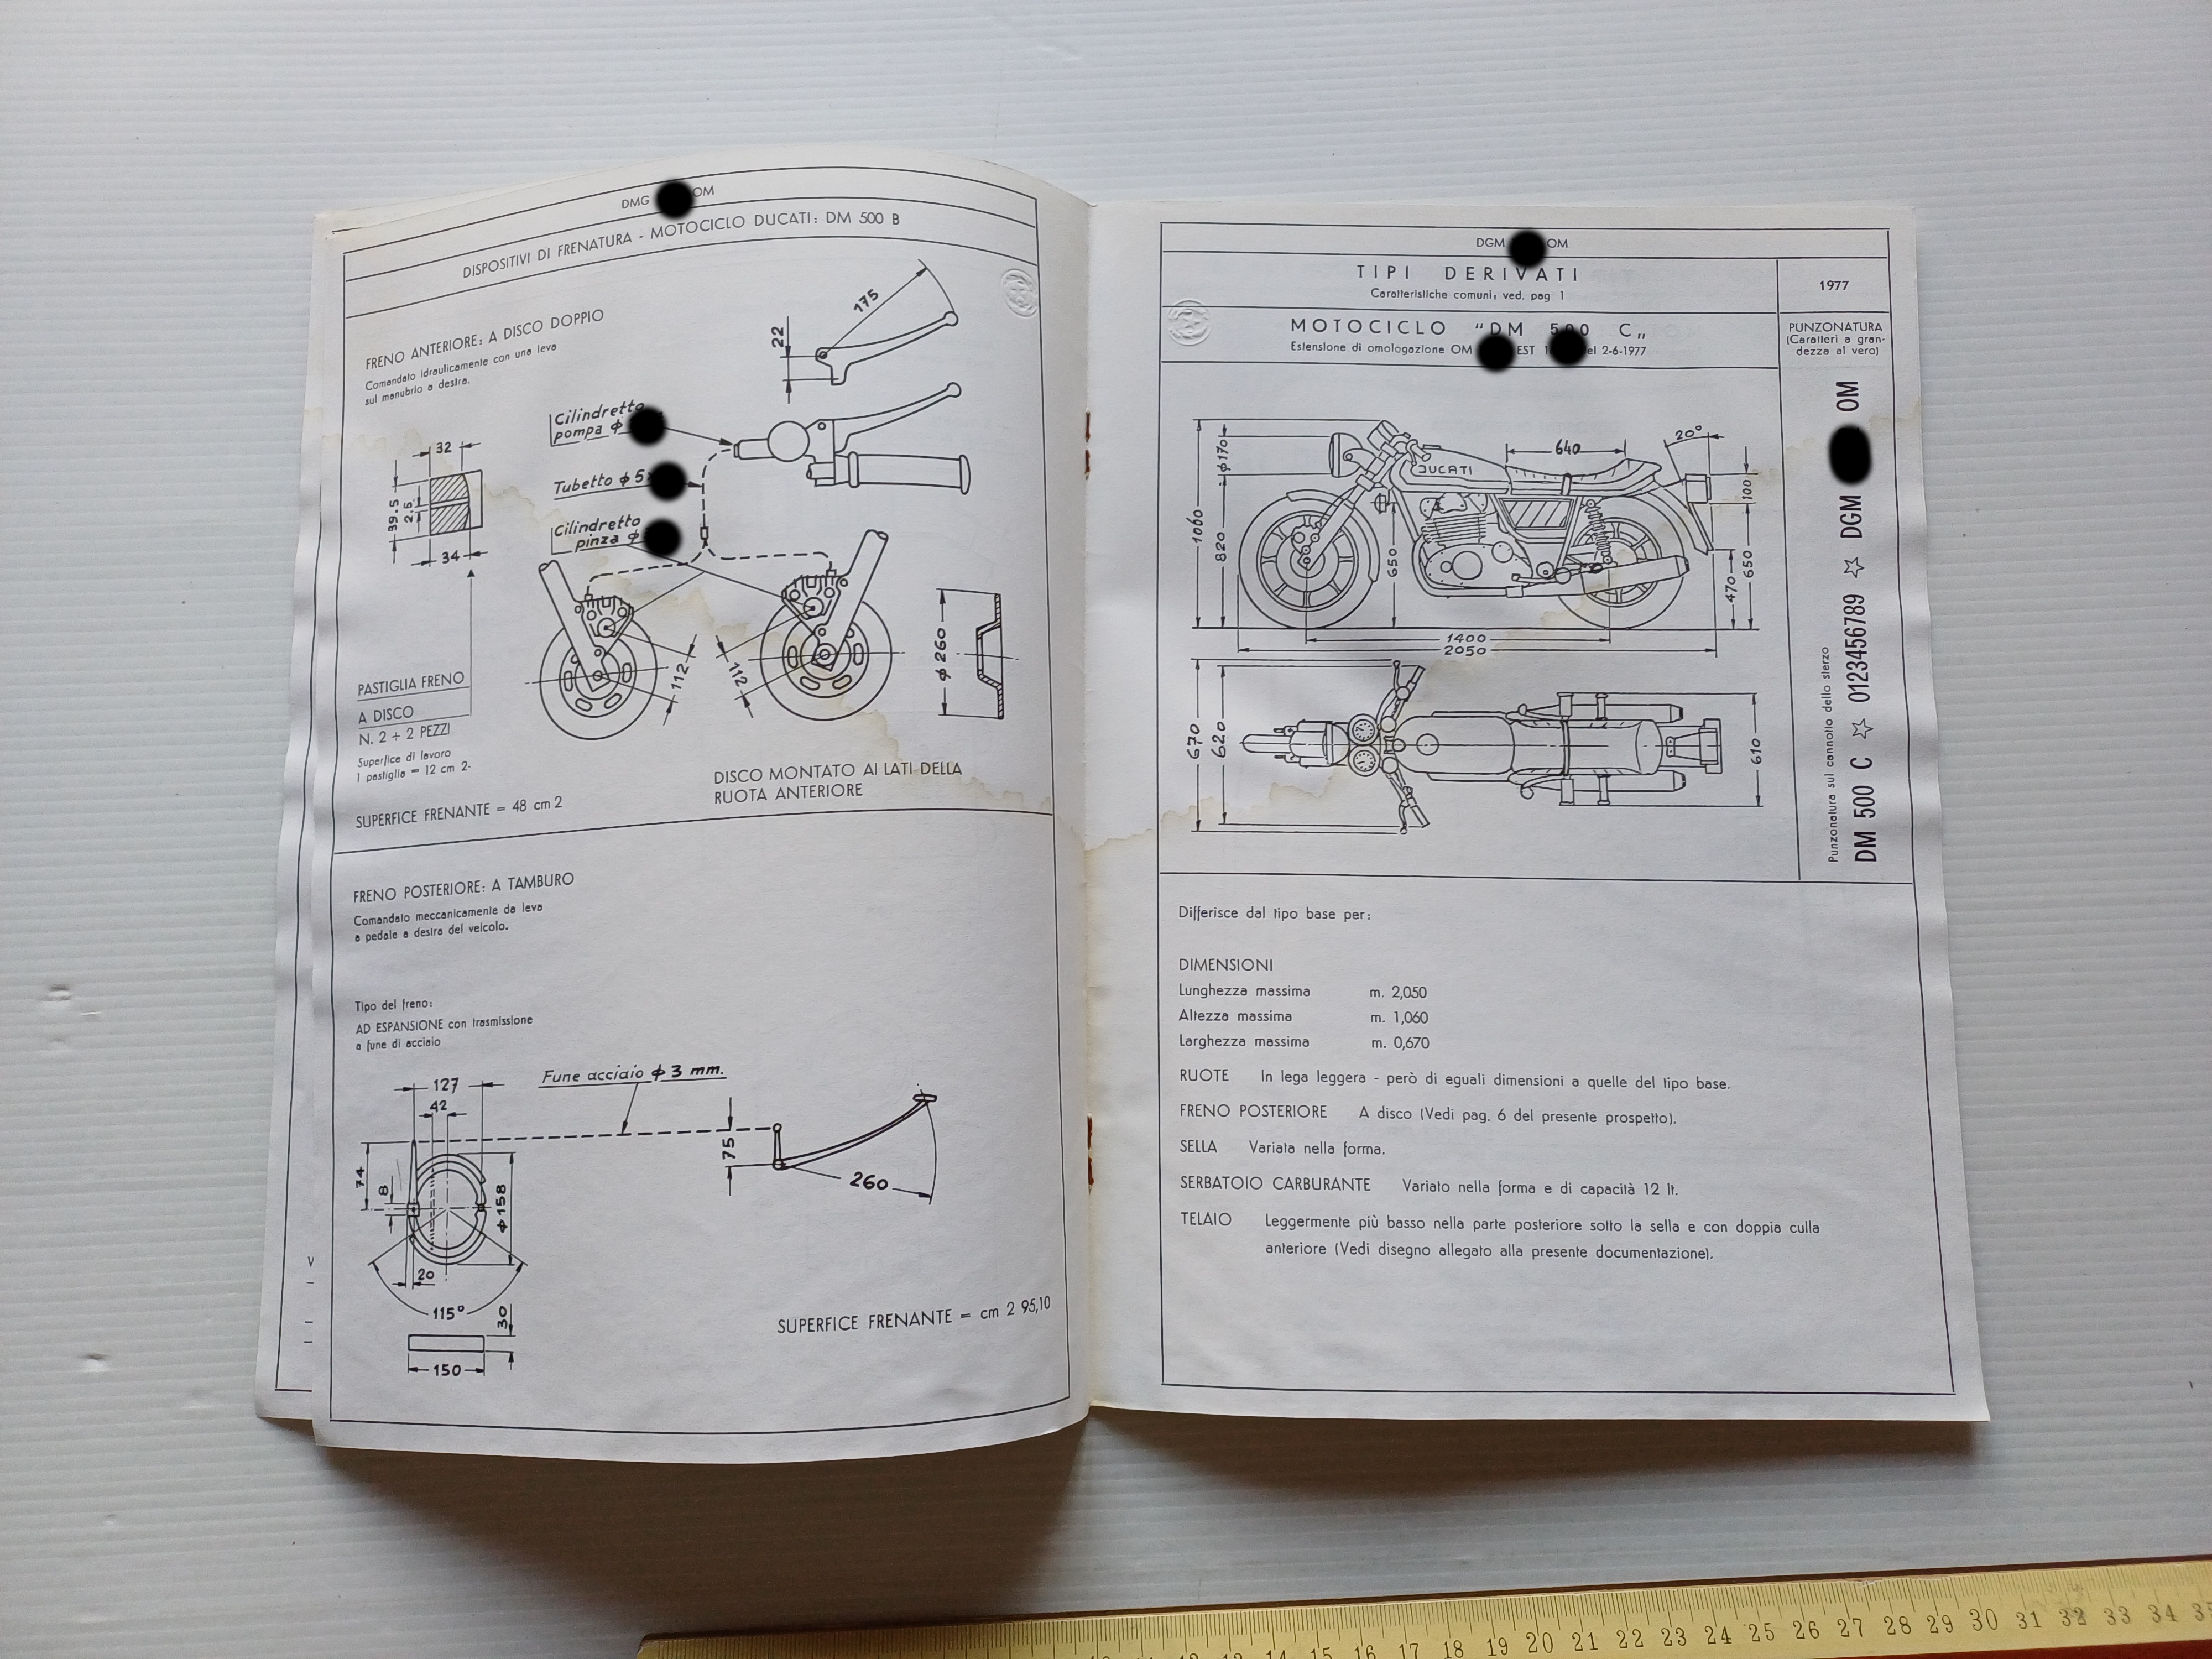 DMG OM
DISPOSITIVI DI FRENATURA - MOTOCICLO DUCATI: DM 500 B
FRENO ANTERIORE: A DISCO DOPPIO
Comandato idraulicamente con una leva
sul manubrio a destra.
175
22
Cilindretto
pompa ϕ
Tubetto ϕ 5
Cilindretto
pinza ϕ
32
39.5
2.5
34
112
112
ϕ 260
PASTIGLIA FRENO
A DISCO
N. 2 + 2 PEZZI
Superfice di lavoro
1 pastiglia = 12 cm 2.
DISCO MONTATO AI LATI DELLA
RUOTA ANTERIORE
SUPERFICE FRENANTE = 48 cm 2
FRENO POSTERIORE: A TAMBURO
Comandato meccanicamente da leva
a pedale a destra del veicolo.
Tipo del freno:
AD ESPANSIONE con trasmissione
a fune di acciaio
Fune acciaio ϕ 3 mm.
127
42
74
8
ϕ 158
20
115°
30
150
75
260
SUPERFICE FRENANTE = cm 2 95,10
V
DGM OM
TIPI DERIVATI
Caratteristiche comuni: ved. pag 1
1977
MOTOCICLO "DM 500 C„
Estensione di omologazione OM EST 1 el 2-6-1977
PUNZONATURA
(Caratteri a gran-
dezza al vero)
Punzonatura sul cannotto dello sterzo
DM 500 C ☆ 0123456789 ☆ DGM OM
DUCATI
640
20°
100
ϕ 170
1060
820
650
470
650
1400
2050
670
620
610
Differisce dal tipo base per:
DIMENSIONI
Lunghezza massima m. 2,050
Altezza massima m. 1,060
Larghezza massima m. 0,670
RUOTE In lega leggera - però di eguali dimensioni a quelle del tipo base.
FRENO POSTERIORE A disco (Vedi pag. 6 del presente prospetto).
SELLA Variata nella forma.
SERBATOIO CARBURANTE Variato nella forma e di capacità 12 lt.
TELAIO Leggermente più basso nella parte posteriore sotto la sella e con doppia culla
anteriore (Vedi disegno allegato alla presente documentazione).
14 15 16 17 18 19 20 21 22 23 24 25 26 27 28 29 30 31 32 33 34